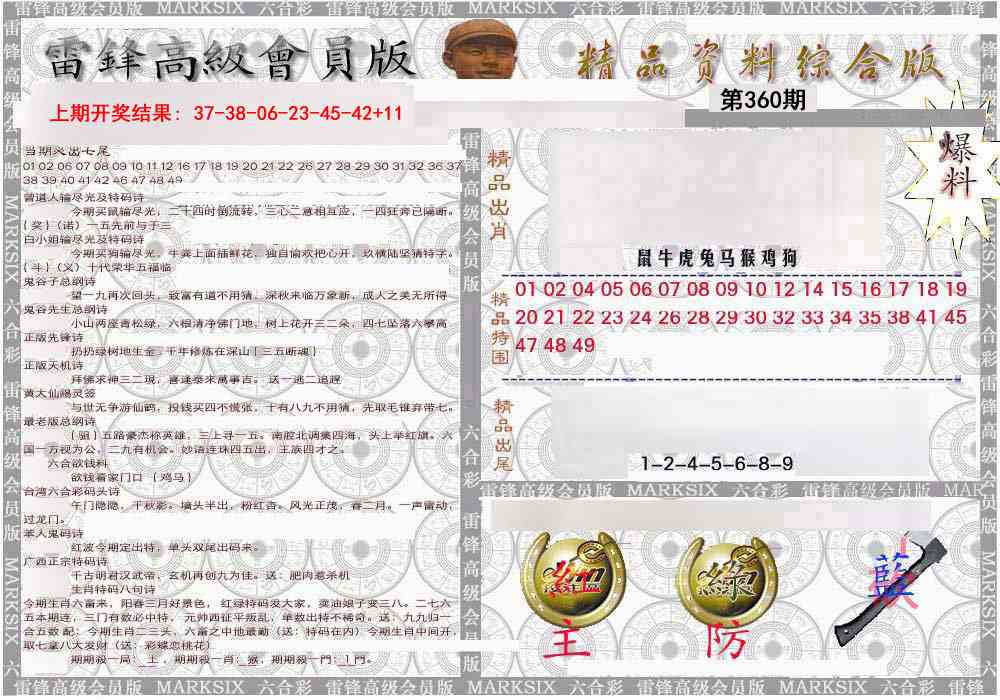 雷锋高级会员版 MARKSIX 六合彩 雷锋高级会员版 MARKSIX 六合彩 雷锋高级会员版 MARKSIX 六合彩 雷锋
雷鋒高級會員版
精品资料综合版
第360期
上期开奖结果：37-38-06-23-45-42+11
爆料
当期必出七尾
01 02 06 07 08 09 10 11 12 16 17 18 19 20 21 22 26 27 28 29 30 31 32 36 37
38 39 40 41 42 46 47 48 49
曾道人输尽光及特码诗
今期买鼠输尽光，二十四时倒流转，三心二意相互应，一四狂奔已隔断。
{奖}（诺）一五先前与子三
白小姐输尽光及特码诗
今期买狗输尽光，牛粪上面插鲜花，独自偷欢把心开，玖横陆坚猜特字。
{斗}（义）十代荣华五福临
鬼谷子总纲诗
望一九再次回头，致富有道不用猜，深秋来临万象新，成人之美无所得
鬼谷先生总纲诗
小山两座青松绿，六根清净佛门地，树上花开三二朵，四七坠落六攀高
正版先锋诗
扔扔绿树地生金，千年修炼在深山{三五断魂}
正版天机诗
拜佛求神三二現，喜逢泰來萬事吉。 送一逃二追趕
黄大仙赐灵签
与世无争游仙鹤，投钱买四不慌张，十有八九不用猜，先取毛锥弃带七。
最老版总纲诗
{驵}五路豪杰称英雄，三上寻一五。南腔北调集四海，头上举红旗。六
国一万视为公，二九有机会。妙语连珠四五出，王族四才之。
六合欲钱料
欲钱看家门口 {鸡马}
台湾六合彩码头诗
午门隐隐，千秋影。墙头半出，粉红杏。风光正茂，春二月。一声雷动，
过龙门。
本人鬼码诗
红波今期定出特，单头双尾出码来。
广西正宗特码诗
千古胡君汉武帝，玄机再创九为佳。送：肥肉惹杀机
生肖特码八句诗
今期生肖六畜来，阳春三月好景色， 红绿特码发大家，卖油娘子变三八。二七六
五本期连，三门有数必中特， 元帅西征平叛乱，单数出特不稀奇。送：九九归一
合五数 配：今期生肖二三头，六畜之中他最勤（送：特码在内）今期生肖中间开，
取七拿八大发财（送：彩蝶恋桃花）
期期殺一局：土，期期殺一肖：猴，期期殺一門：1門。
精品出肖
鼠牛虎兔马猴鸡狗
精品特围
01 02 04 05 06 07 08 09 10 12 14 15 16 17 18 19
20 21 22 23 24 26 28 29 30 32 33 34 35 38 41 45
47 48 49
精品出尾
1-2-4-5-6-8-9
雷锋高级会员版 MARKSIX 六合彩 雷锋高级会员版 MAR
紅
主
綠
防
藍
雷锋高级会员版 MARKSIX 六合彩 雷锋高级会员版 MARKSIX 六合彩 雷锋高级会员版 MARKSIX 六合彩 雷锋